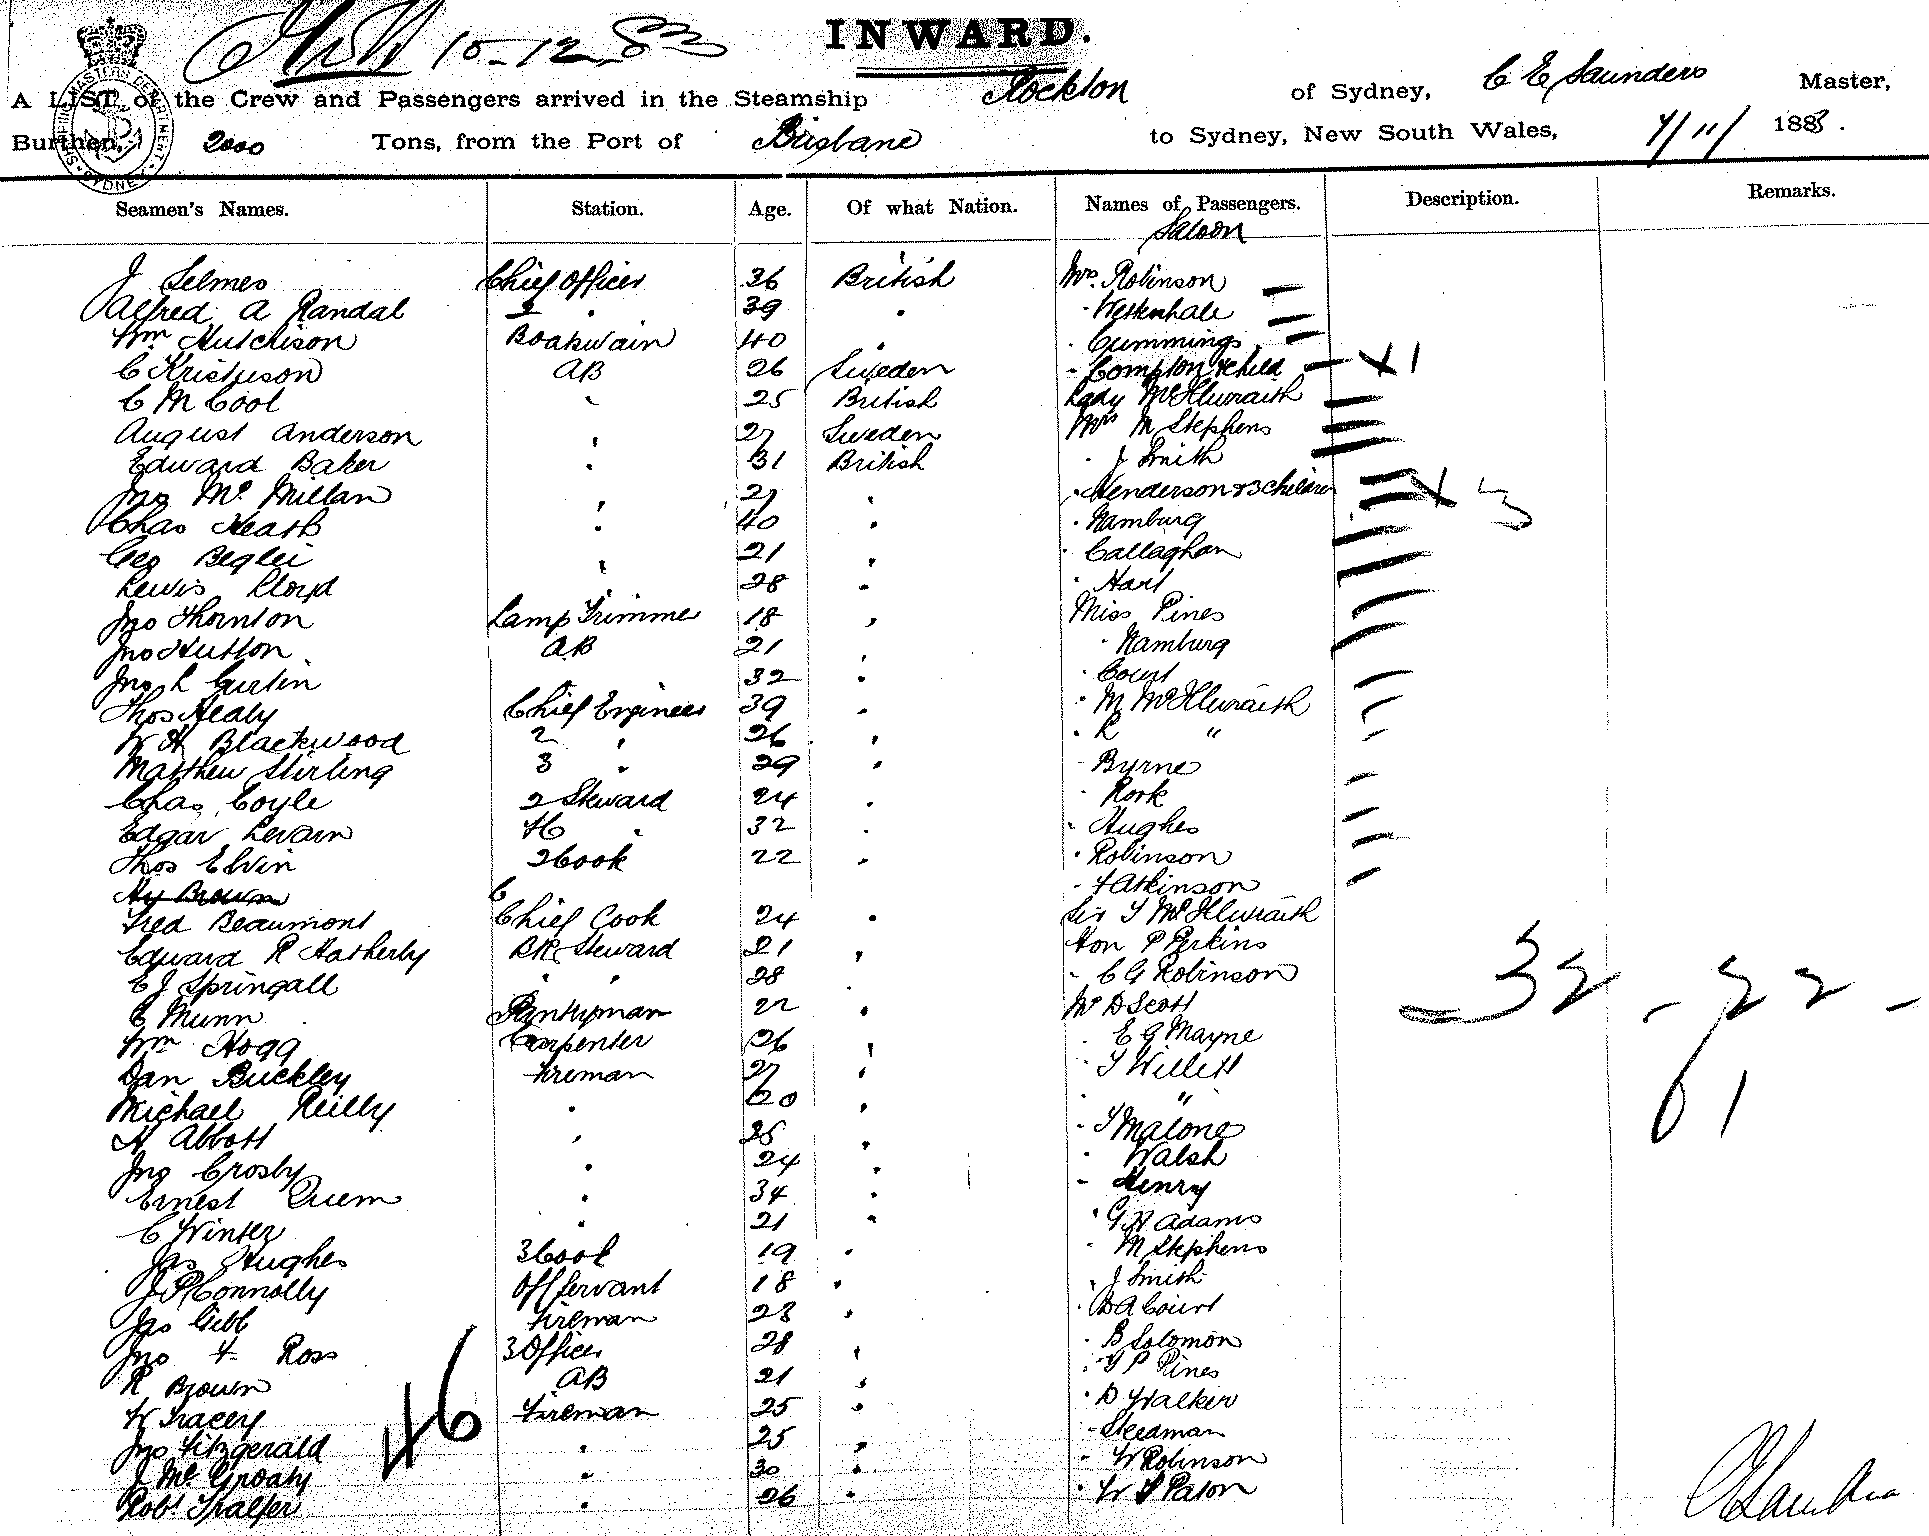 10-12-83
INWARD.
A LIST of the Crew and Passengers arrived in the Steamship Rockton of Sydney, C E Saunders Master,
Burthen, 2000 Tons, from the Port of Brisbane to Sydney, New South Wales, 7/11/ 1883.
Seamen's Names. Station. Age. Of what Nation. Names of Passengers. Description. Remarks.
Saloon
J Selmes Chief Officer 36 British Mrs. Robinson
Alfred A Randal 2 " 39 " " Wettenhale
Wm Hutchison Boatswain 40 " " Cummings
C Kristuson AB 26 Sweden " Compton & child X1
C M Cool " 25 British Lady McIlwraith
August Anderson " 27 Sweden Mrs M Stephens
Edward Baker " 31 British " J Smith
Jno Mc Millan " 27 " " Henderson & 3 children X 3
Chas Heath " 40 " " Namburg
Geo Beglei " 21 " " Callaghan
Lewis Lloyd " 28 " " Hart
Jno Thornton Lamp Trimmer 18 " Miss Pines
Jno Hutton AB 21 " " Namburg
Jno L Curtin " 32 " " Court
Thos Healy Chief Engineer 39 " " M McIlwraith
W H Blackwood 2 " 26 " " R "
Matthew Stirling 3 " 29 " " Byrne
Chas Coyle 2 Steward 24 " " Rork
Edgar Levarn " 32 " " Hughes
Thos Elvin 2 Cook 22 " " Robinson
Hy Brown C " F Atkinson
Fred Beaumont Chief Cook 24 " Sir T McIlwraith
Edward R Hatherby BR Steward 21 " Hon P Perkins
E J Springall " " 28 " " C G Robinson 32 - 22 -
C Munn Pantryman 22 " Mr D Scott
Wm Hogg Carpenter 26 " " E G Mayne
Dan Buckley Fireman 27 " " T Willett
Michael Reilly " 60 " " " 61
H Abbott " 25 " " T Malone
Jno Crosby " 24 " " Walsh
Ernest Quem " 34 " " Henry
C Winter " 21 " " G H Adams
Jas Hughes 3 Cook 19 " " M Stephens
J P Connolly Off Servant 18 " " J Smith
Jas Gibb Fireman 23 " " D A Court
Jno F Ross 3 Officer 28 " " B Solomon
R Brown AB 21 " " G P Pines
W Tracey Fireman 25 " " D Walker
46
Jno Fitzgerald " 25 " " Steedman
J Mc Groaty " 30 " " W Robinson
Robt " 26 " " W Paton